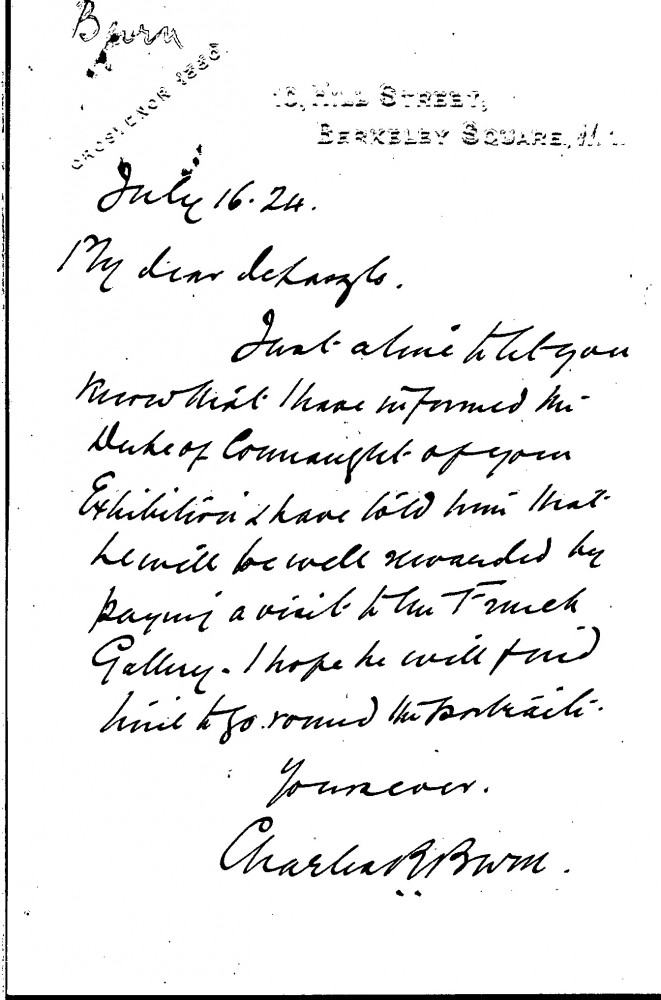 Burn
GROSVENOR 1880
10, HILL STREET,
BERKELEY SQUARE, W.1.
July 16. 24.
My dear de Laszlo.
Just a line to let you
know that I have informed the
Duke of Connaught of your
Exhibition & have told him that
he will be well rewarded by
paying a visit to the French
Gallery - I hope he will find
time to go round the portraits.
Yours ever.
Charles R Burn.